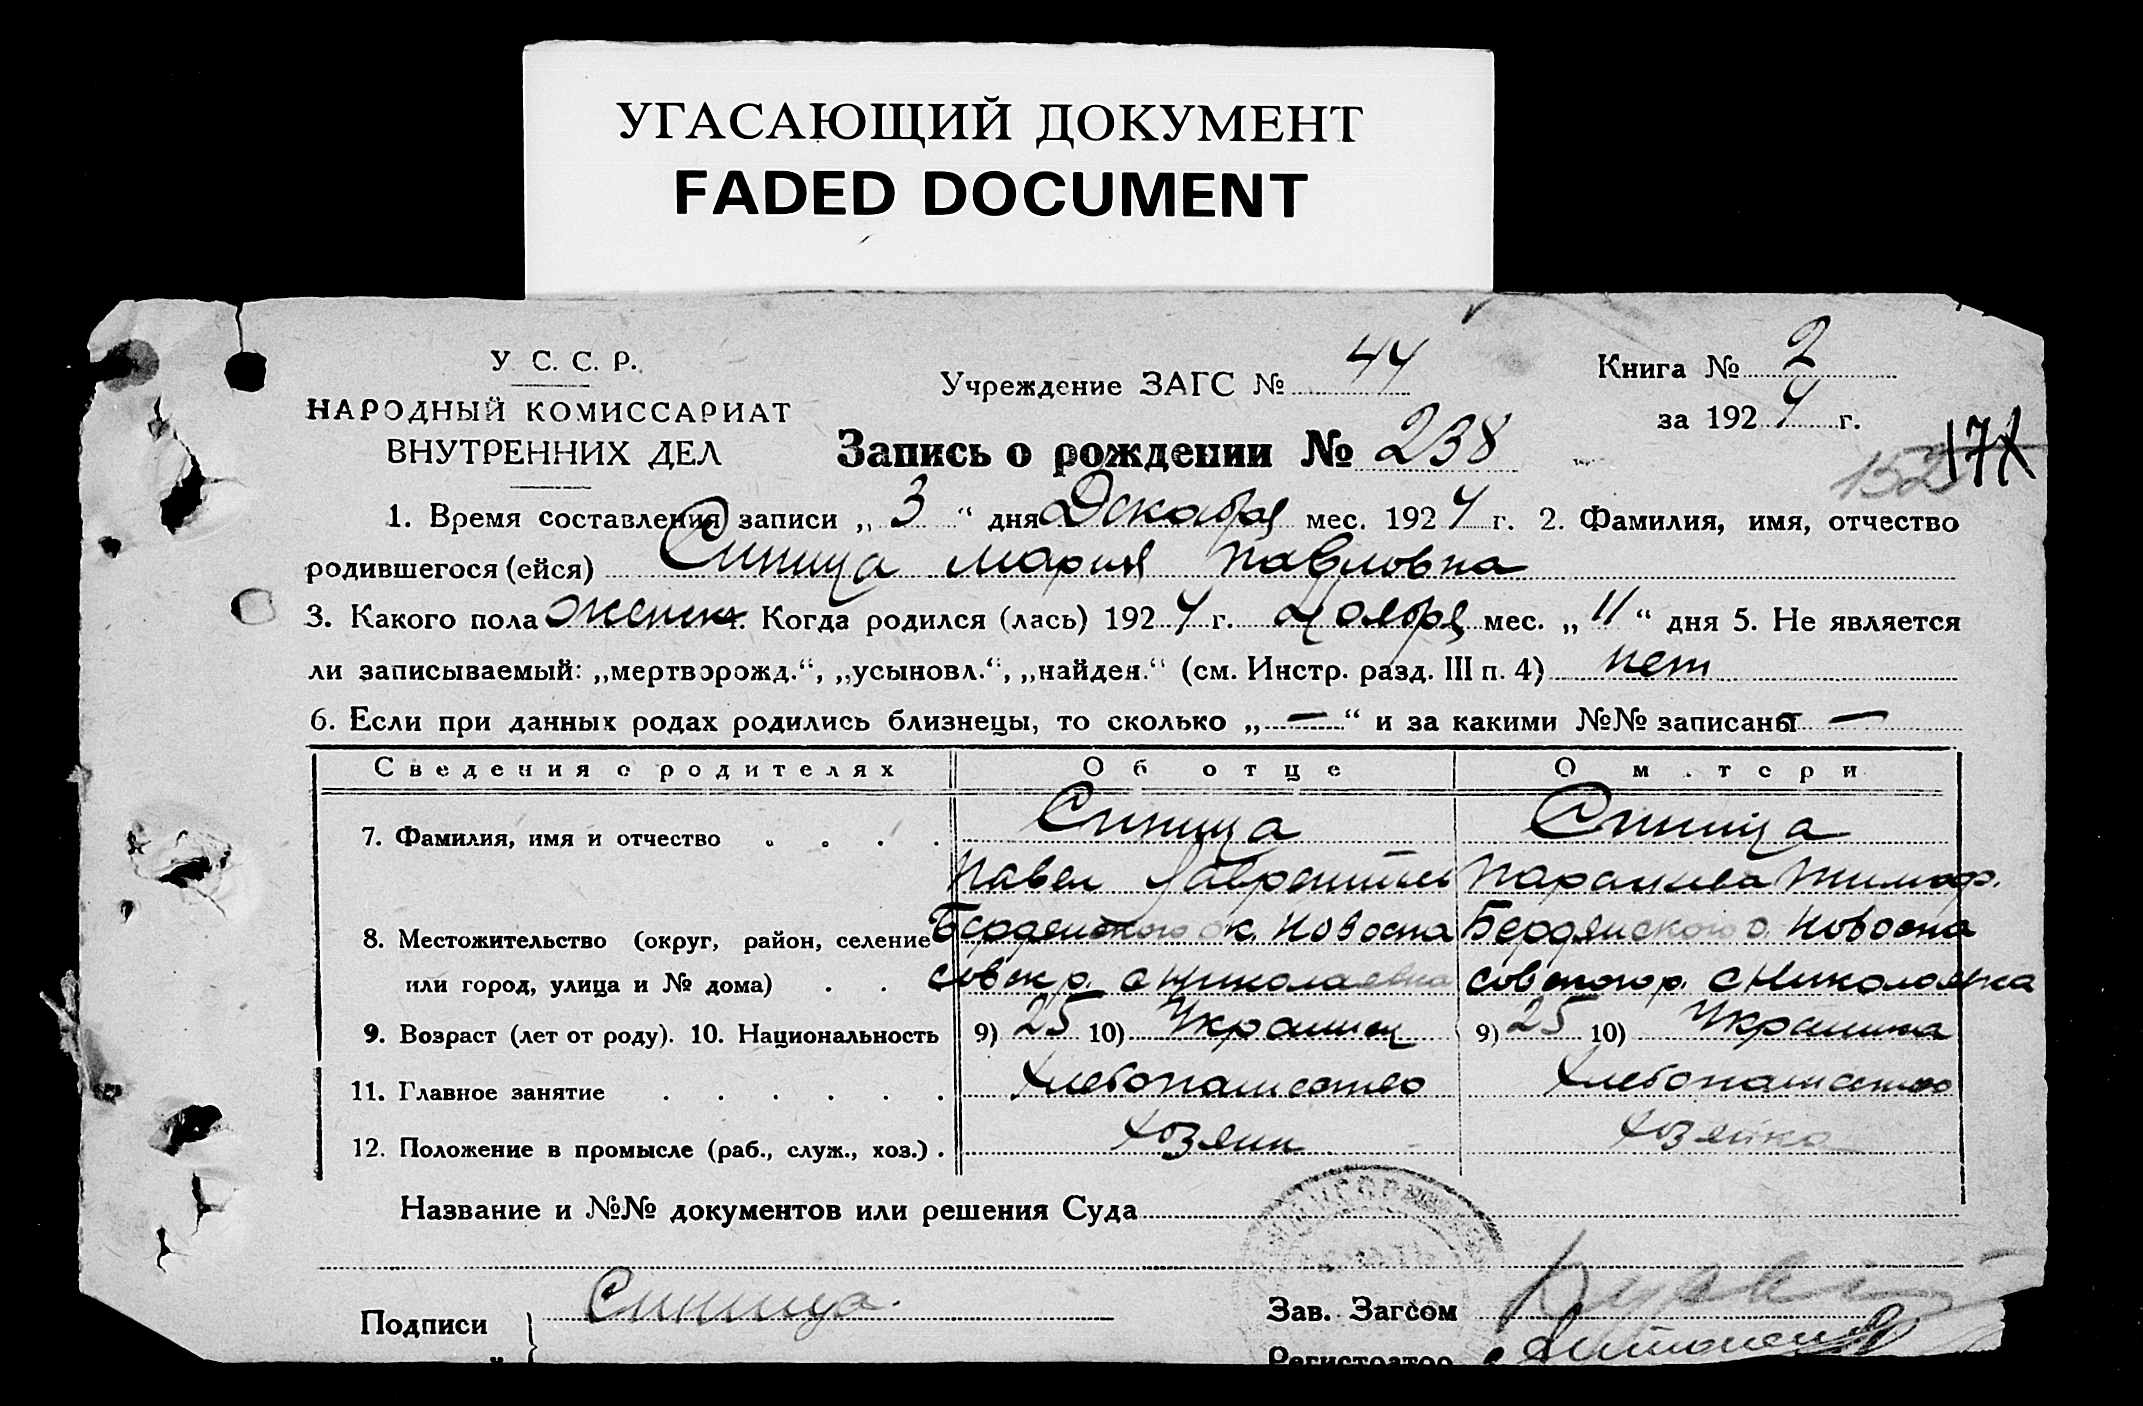 УГАСАЮЩИЙ ДОКУМЕНТ
FADED DOCUMENT
У. С. С. Р.
НАРОДНЫЙ КОМИССАРИАТ
ВНУТРЕННИХ ДЕЛ
Учреждение ЗАГС № 44
Книга № 2
за 1924 г.
Запись о рождении № 238
152 171
1. Время составления записи „ 3 “ дня Декабря мес. 1924 г. 2. Фамилия, имя, отчество
родившегося (ейся) Синица Мария Павловна
3. Какого пола женск 4. Когда родился (лась) 1924 г. Ноября мес. „ 11 “ дня 5. Не является
ли записываемый: „мертворожд.“, „усыновл.“, „найден.“ (см. Инстр. разд. III п. 4) нет
6. Если при данных родах родились близнецы, то сколько „ — “ и за какими №№ записаны —
Сведения о родителях Об отце О матери
7. Фамилия, имя и отчество . . . . Синица Синица
Павел Лаврентьев Параскева Тимоф.
8. Местожительство (округ, район, селение Бердянского ок. Новоспа Бердянского о. Новоспа
или город, улица и № дома) . . . совск р. с Николаевка совского р. с Николаевка
9. Возраст (лет от роду). 10. Национальность 9) 25 10) Украинец 9) 25 10) Украинка
11. Главное занятие . . . . . . Хлебопашество Хлебопашество
12. Положение в промысле (раб., служ., хоз.) . Хозяин Хозяйка
Название и №№ документов или решения Суда
Подписи Синица. Зав. Загсом
Регистратор